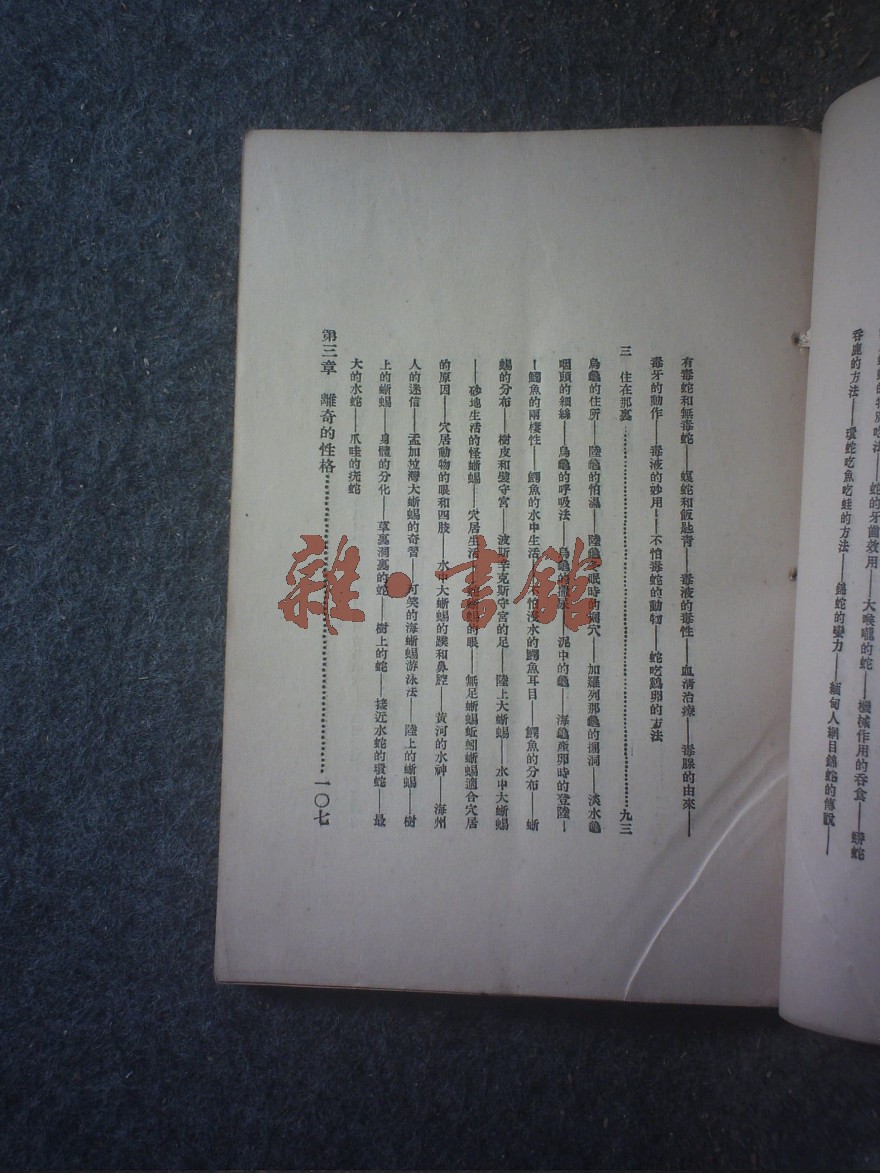 吞鹿的方法——環蛇吃魚吃蛙的方法——錦蛇的彎力——緬甸人網目錦蛇的傳說——
有毒蛇和無毒蛇——蝮蛇和飯匙青——毒液的毒性——血清治療——毒腺的由來——
毒牙的動作——毒液的妙用——不怕毒蛇的動物——蛇吃鷄卵的方法
三 住在那裏 九三
烏龜的住所——陸龜的怕濕——陸龜眠時的掘穴——加羅列那龜的掘洞——淡水龜
咽頭的細絲——烏龜的呼吸法——烏龜的——泥中的龜——海龜産卵時的登陸—
—鱷魚的兩棲性——鱷魚的水中生活——不怕浸水的鱷魚耳目——鱷魚的分布——蜥
蜴的分布——樹皮和壁守宮——波斯辛克斯守宮的足——陸上大蜥蜴——水中大蜥蜴
——砂地生活的怪蜥蜴——穴居生活——的眼——無足蜥蜴蚯蚓蜥蜴適合穴居
的原因——穴居動物的眼和四肢——水中大蜥蜴的蹼和鼻腔——黃河的水神——海州
人的迷信——孟加拉灣大蜥蜴的奇習——可笑的海蜥蜴游泳法——陸上的蜥蜴——樹
上的蜥蜴——身體的分化——草裏洞裏的蛇——樹上的蛇——接近水蛇的環蛇——最
大的水蛇——爪哇的疣蛇
第三章 離奇的性格 一〇七
雜·書館